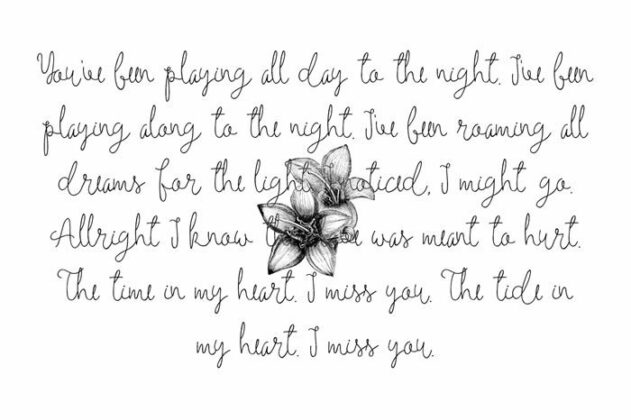 You've been playing all day to the night. I've been
playing along to the night. I've been roaming all
dreams for the light I noticed, I might go.
Allright I know was meant to hurt.
The time in my heart. I miss you. The tide in
my heart. I miss you.